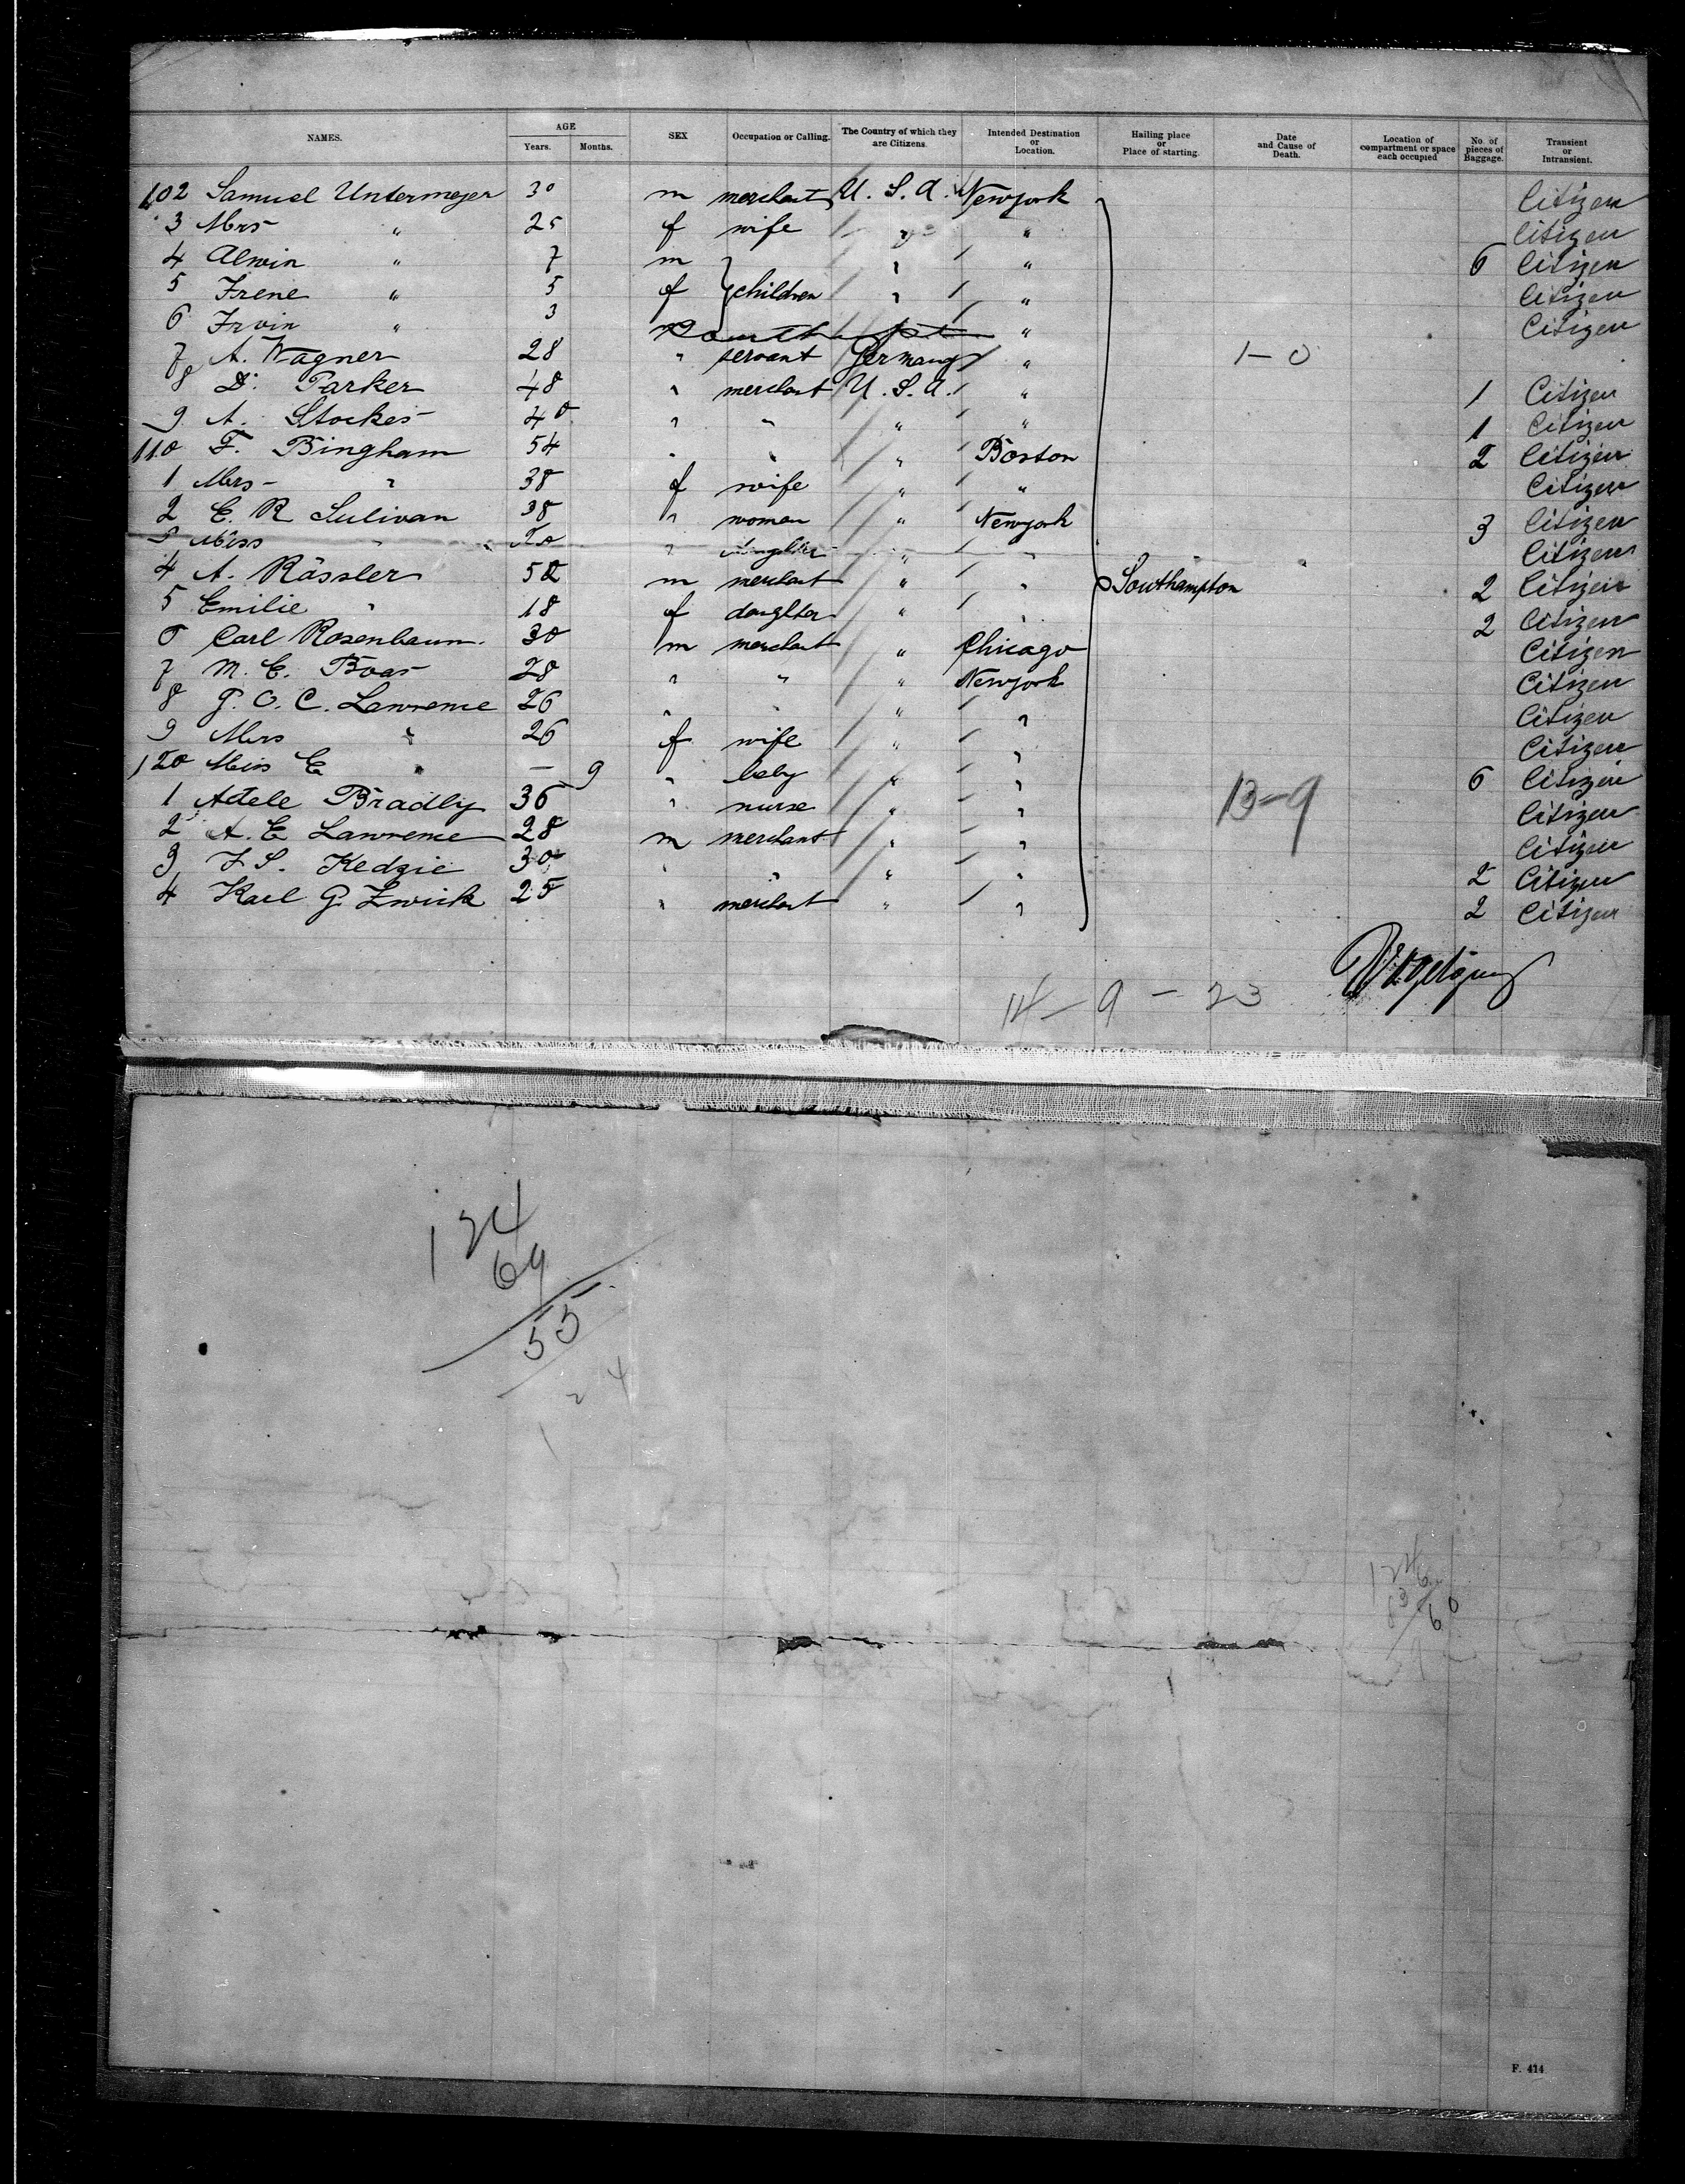 NAMES. AGE Years. Months. SEX Occupation or Calling. The Country of which they are Citizens. Intended Destination or Location. Hailing place or Place of starting. Date and Cause of Death. Location of compartment or space each occupied No. of pieces of Baggage. Transient or Intransient.
102 Samuel Untermeyer 30 m merchant U.S.A. Newyork Citizen
3 Mrs " 25 f wife " " Citizen
4 Alwin " 7 m " " 6 Citizen
5 Irene " 5 f children " " Citizen
6 Irvin " 3 " Citizen
7 A. Wagner 28 " servant Germany " 1-0
8 D. Parker 48 " merchant U.S.A. " 1 Citizen
9 A. Stockes 40 " " " " 1 Citizen
110 F. Bingham 54 " " " Boston 2 Citizen
1 Mrs - " 38 f wife " " Citizen
2 E. R Sulivan 38 " woman " Newyork 3 Citizen
3 Miss " 20 " daughter " " Citizen
4 A. Rässler 52 m merchant " " Southampton 2 Citizen
5 Emilie " 18 f daughter " " 2 Citizen
6 Carl Rosenbaum. 30 m merchant " Chicago Citizen
7 M. E. Boas 28 " " " Newyork Citizen
8 G. O. C. Lawrence 26 " " " " Citizen
9 Mrs " 26 f wife " " Citizen
120 Miss E " — 9 " baby " " 6 Citizen
1 Adele Bradly 36 " nurse " " 13-9 Citizen
2 A. E Lawrence 28 m merchant " " Citizen
3 F. S. Kedzie 30 " " " " 2 Citizen
4 Karl G. Zwick 25 " merchant " " 2 Citizen
14 - 9 - 23
124
69
55
124
F. 414